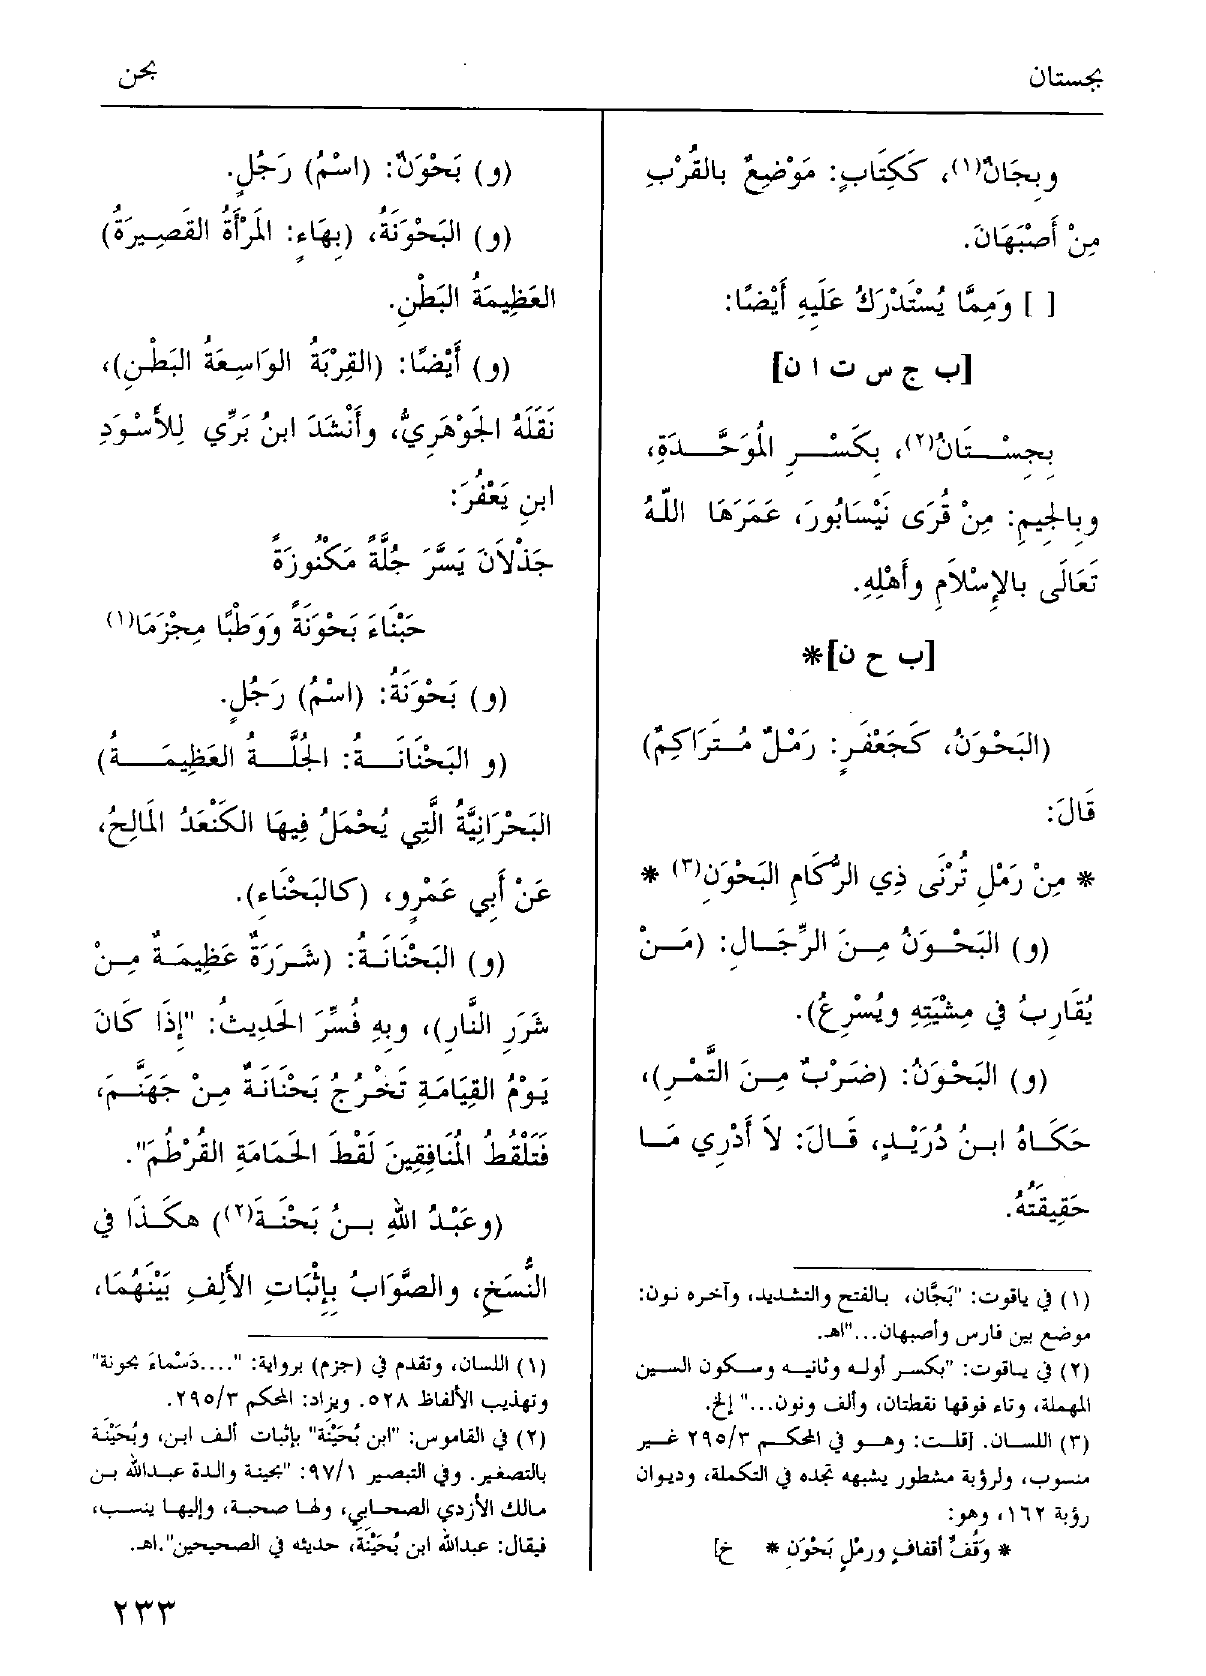 بجستان
بحن
وبِجَانٌ(١)، كَكِتَابٍ: مَوْضِعٌ بالقُرْبِ
مِنْ أَصْبَهَانَ.
[ ] وَمِمَّا يُسْتَدْرَكُ عَلَيهِ أَيْضًا:
[ب ج س ت ا ن]
بِجِسْتَانُ(٢)، بِكَسْرِ المُوَحَّدَةِ،
وبِالجِيمِ: مِنْ قُرَى نَيْسَابُورَ، عَمَرَهَا اللّهُ
تَعَالَى بالإِسْلاَمِ وأَهْلِهِ.
[ب ح ن]*
(البَحْوَنُ، كَجَعْفَرٍ: رَمْلٌ مُتَرَاكِمٌ)
قَالَ:
* مِنْ رَمْلِ تُرْنَى ذِي الرُّكَامِ البَحْوَنِ(٣) *
(و) البَحْوَنُ مِنَ الرِّجَالِ: (مَنْ
يُقَارِبُ في مِشْيَتِهِ ويُسْرِعُ).
(و) البَحْوَنُ: (ضَرْبٌ مِنَ التَّمْرِ)،
حَكَاهُ ابنُ دُرَيْدٍ، قَالَ: لاَ أَدْرِي مَا
حَقِيقَتُهُ.
(١) في ياقوت: "بَجَّان، بالفتح والتشديد، وآخره نون:
موضع بين فارس وأصبهان..."اهـ.
(٢) في ياقوت: "بكسر أوله وثانيه وسكون السين
المهملة، وتاء فوقها نقطتان، وألف ونون..." إلخ.
(٣) اللسان. [قلت: وهو في المحكم ٢٩٥/٣ غير
منسوب، ولرؤبة مشطور يشبهه تجده في التكملة، وديوان
رؤبة ١٦٢، وهو:
* وَقُفِّ أقفافٍ ورمْلٍ بَحْوَنِ * خ]
(و) بَحْوَنٌ: (اسْمُ) رَجُلٍ.
(و) البَحْوَنَةُ، (بِهَاءٍ: المَرْأَةُ القَصِيرَةُ)
العَظِيمَةُ البَطْنِ.
(و) أَيْضًا: (القِرْبَةُ الوَاسِعَةُ البَطْنِ)،
نَقَلَهُ الجَوْهَرِيُّ، وأَنْشَدَ ابنُ بَرِّي لِلأَسْوَدِ
ابنِ يَعْفُرَ:
جَذْلاَنَ يَسَّرَ جُلَّةً مَكْنُوزَةً
حَبْنَاءَ بَحْوَنَةً وَوَطْبًا مِجْزَمَا(١)
(و) بَحْوَنَةُ: (اسْمُ) رَجُلٍ.
(و البَحْنَانَةُ: الجُلَّةُ العَظِيمَةُ)
البَحْرَانِيَّةُ الَّتِي يُحْمَلُ فِيهَا الكَنْعَدُ المَالِحُ،
عَنْ أَبِي عَمْرٍو، (كالبَحْنَاءِ).
(و) البَحْنَانَةُ: (شَرَرَةٌ عَظِيمَةٌ مِنْ
شَرَرِ النَّارِ)، وبِهِ فُسِّرَ الحَدِيثُ: "إِذَا كَانَ
يَوْمُ القِيَامَةِ تَخْرُجُ بَحْنَانَةٌ مِنْ جَهَنَّمَ،
فَتَلْقُطُ المُنَافِقِينَ لَقْطَ الحَمَامَةِ القُرْطُمَ".
(وعَبْدُ اللهِ بنُ بَحْنَةَ(٢)) هكَذَا في
النُّسَخِ، والصَّوَابُ بِإِثْبَاتِ الأَلِفِ بَيْنَهُمَا،
(١) اللسان، وتقدم في (جزم) برواية: "....دَسْماءَ بحونة"
وتهذيب الألفاظ ٥٢٨. ويزاد: المحكم ٢٩٥/٣.
(٢) في القاموس: "ابن بُحَيْنَة" بإثبات ألف ابن، وبُحَيْنَة
بالتصغير. وفي التبصير ٩٧/١: "بحينة والدة عبدالله بن
مالك الأزدي الصحابي، ولها صحبة، وإليها ينسب،
فيقال: عبدالله ابن بُحَيْنَة، حديثه في الصحيحين".اهـ.
٢٣٣